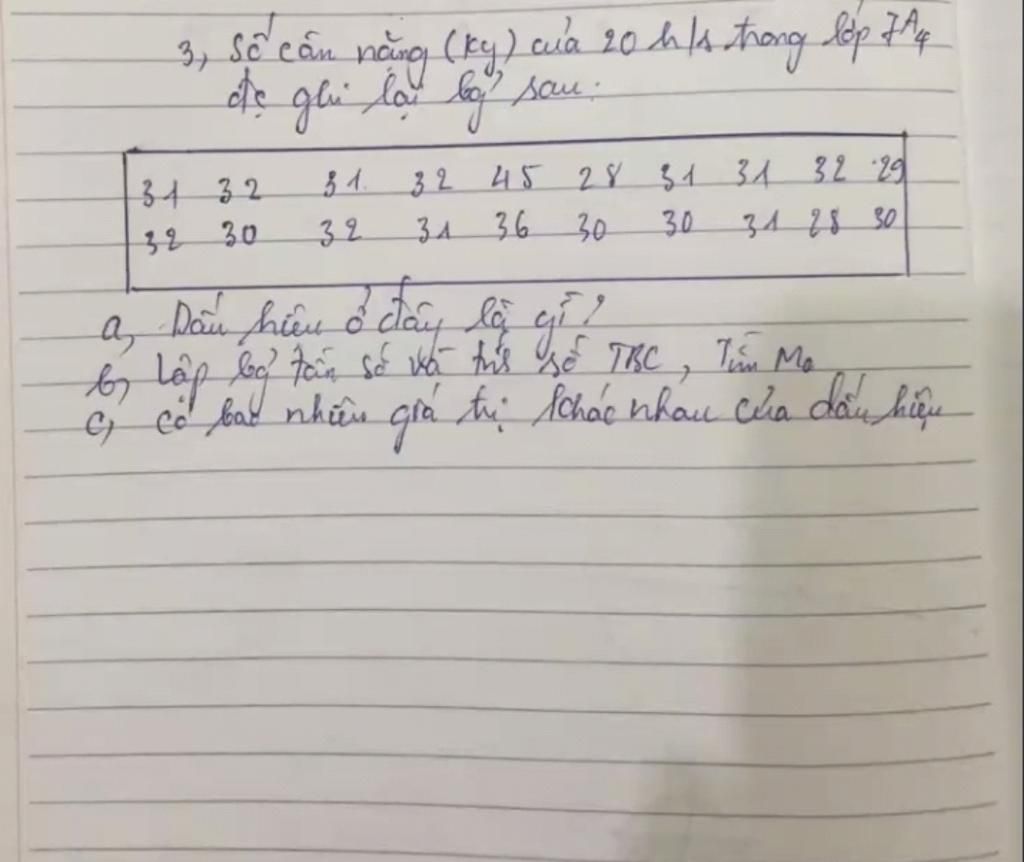 3, Số cân nặng (kg) của 20 h/s trong lớp 7A4
đc ghi lại bở sau:
31 32 31 32 45 28 31 31 32 29
32 30 32 31 36 30 30 31 28 30
a, Dấu hiệu ở đây là gì?
b, Lập bở tần số và số TBC, Tìm Mo
c, có bao nhiêu giá trị khác nhau của dấu hiệu